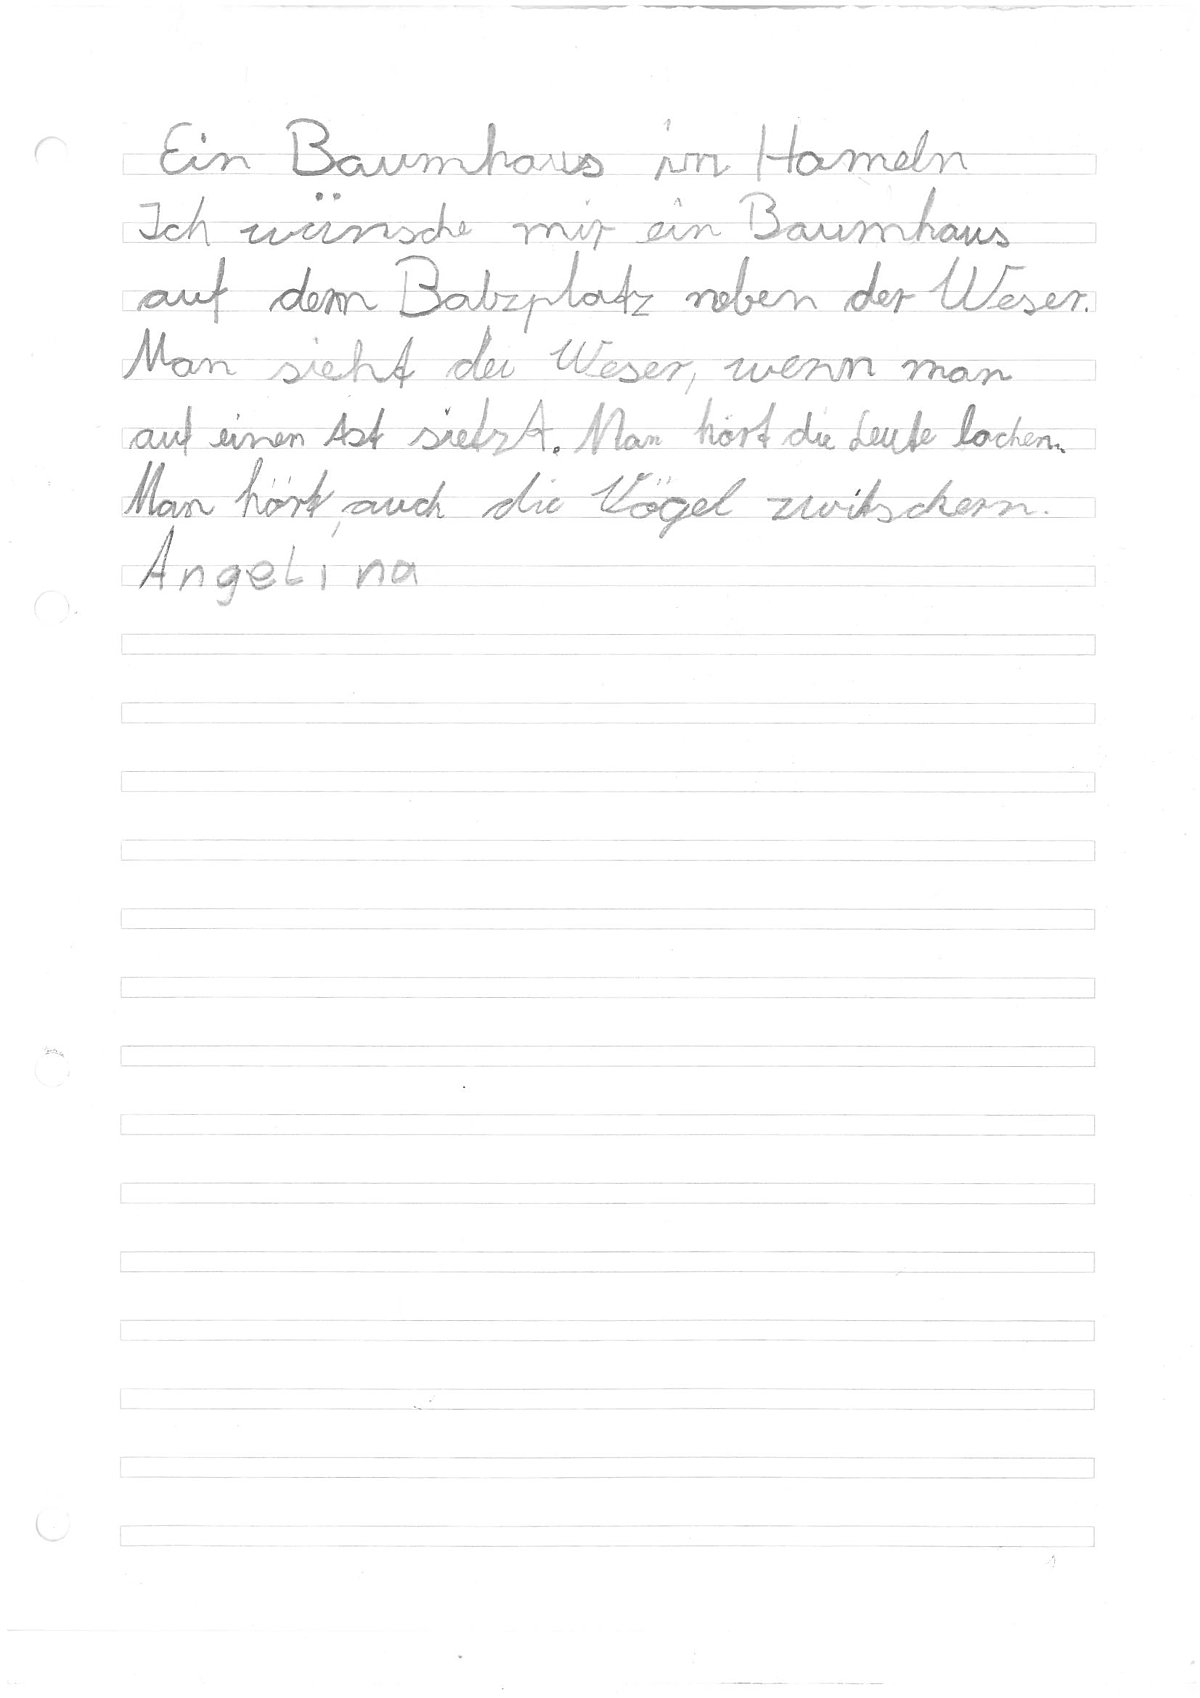 Ein Baumhaus in Hameln
Ich wünsche mir ein Baumhaus
auf dem Balzplatz neben der Weser.
Man sieht dei Weser, wenn man
auf einen Ast sietzt. Man hört die Leute lachen.
Man hört auch die Vögel zwitschern.
Angelina